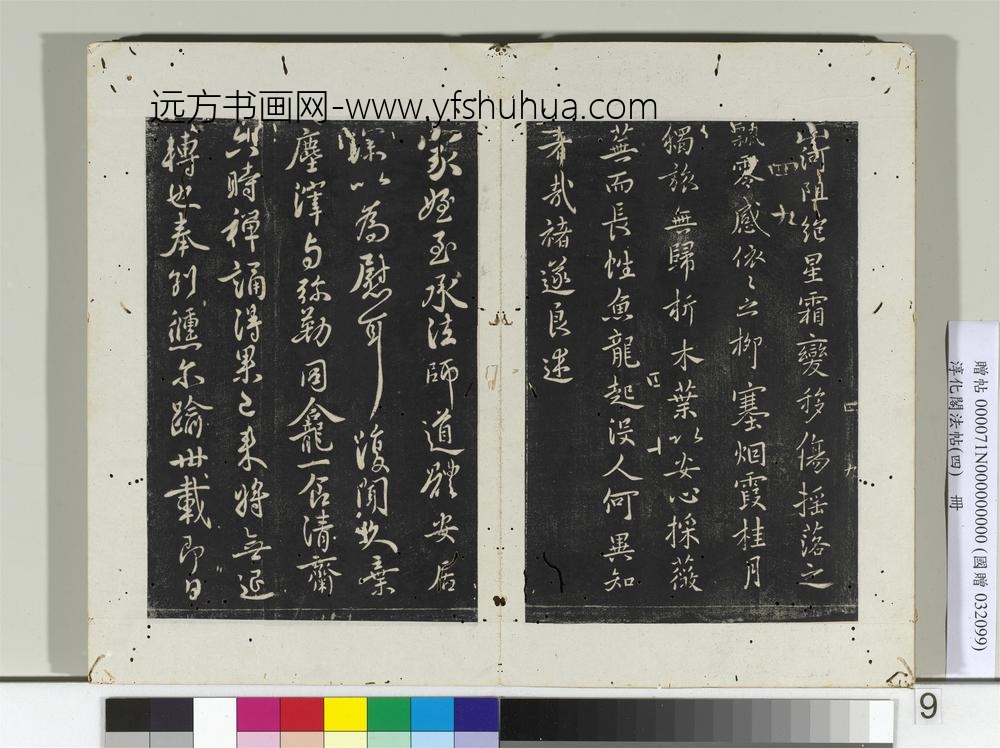 远方书画网-www.yfshuhua.com
山河阻绝星霜變移傷摇落之
飄零感依々之柳塞烟霞桂月
獨旅無歸析木葉以安心採薇
蕪而長性魚龍起没人何異知
者哉褚遂良述
家姪至承法師道體安居
深以為慰耳復聞久棄
塵滓与弥勒同龕一食清齋
六時禅誦得果已来將无退
轉也奉别𫆀尔踰卅載即日
贈帖 000071N000000000 (國贈 032099)
淳化閣法帖(四) 冊
四
十九
四
9